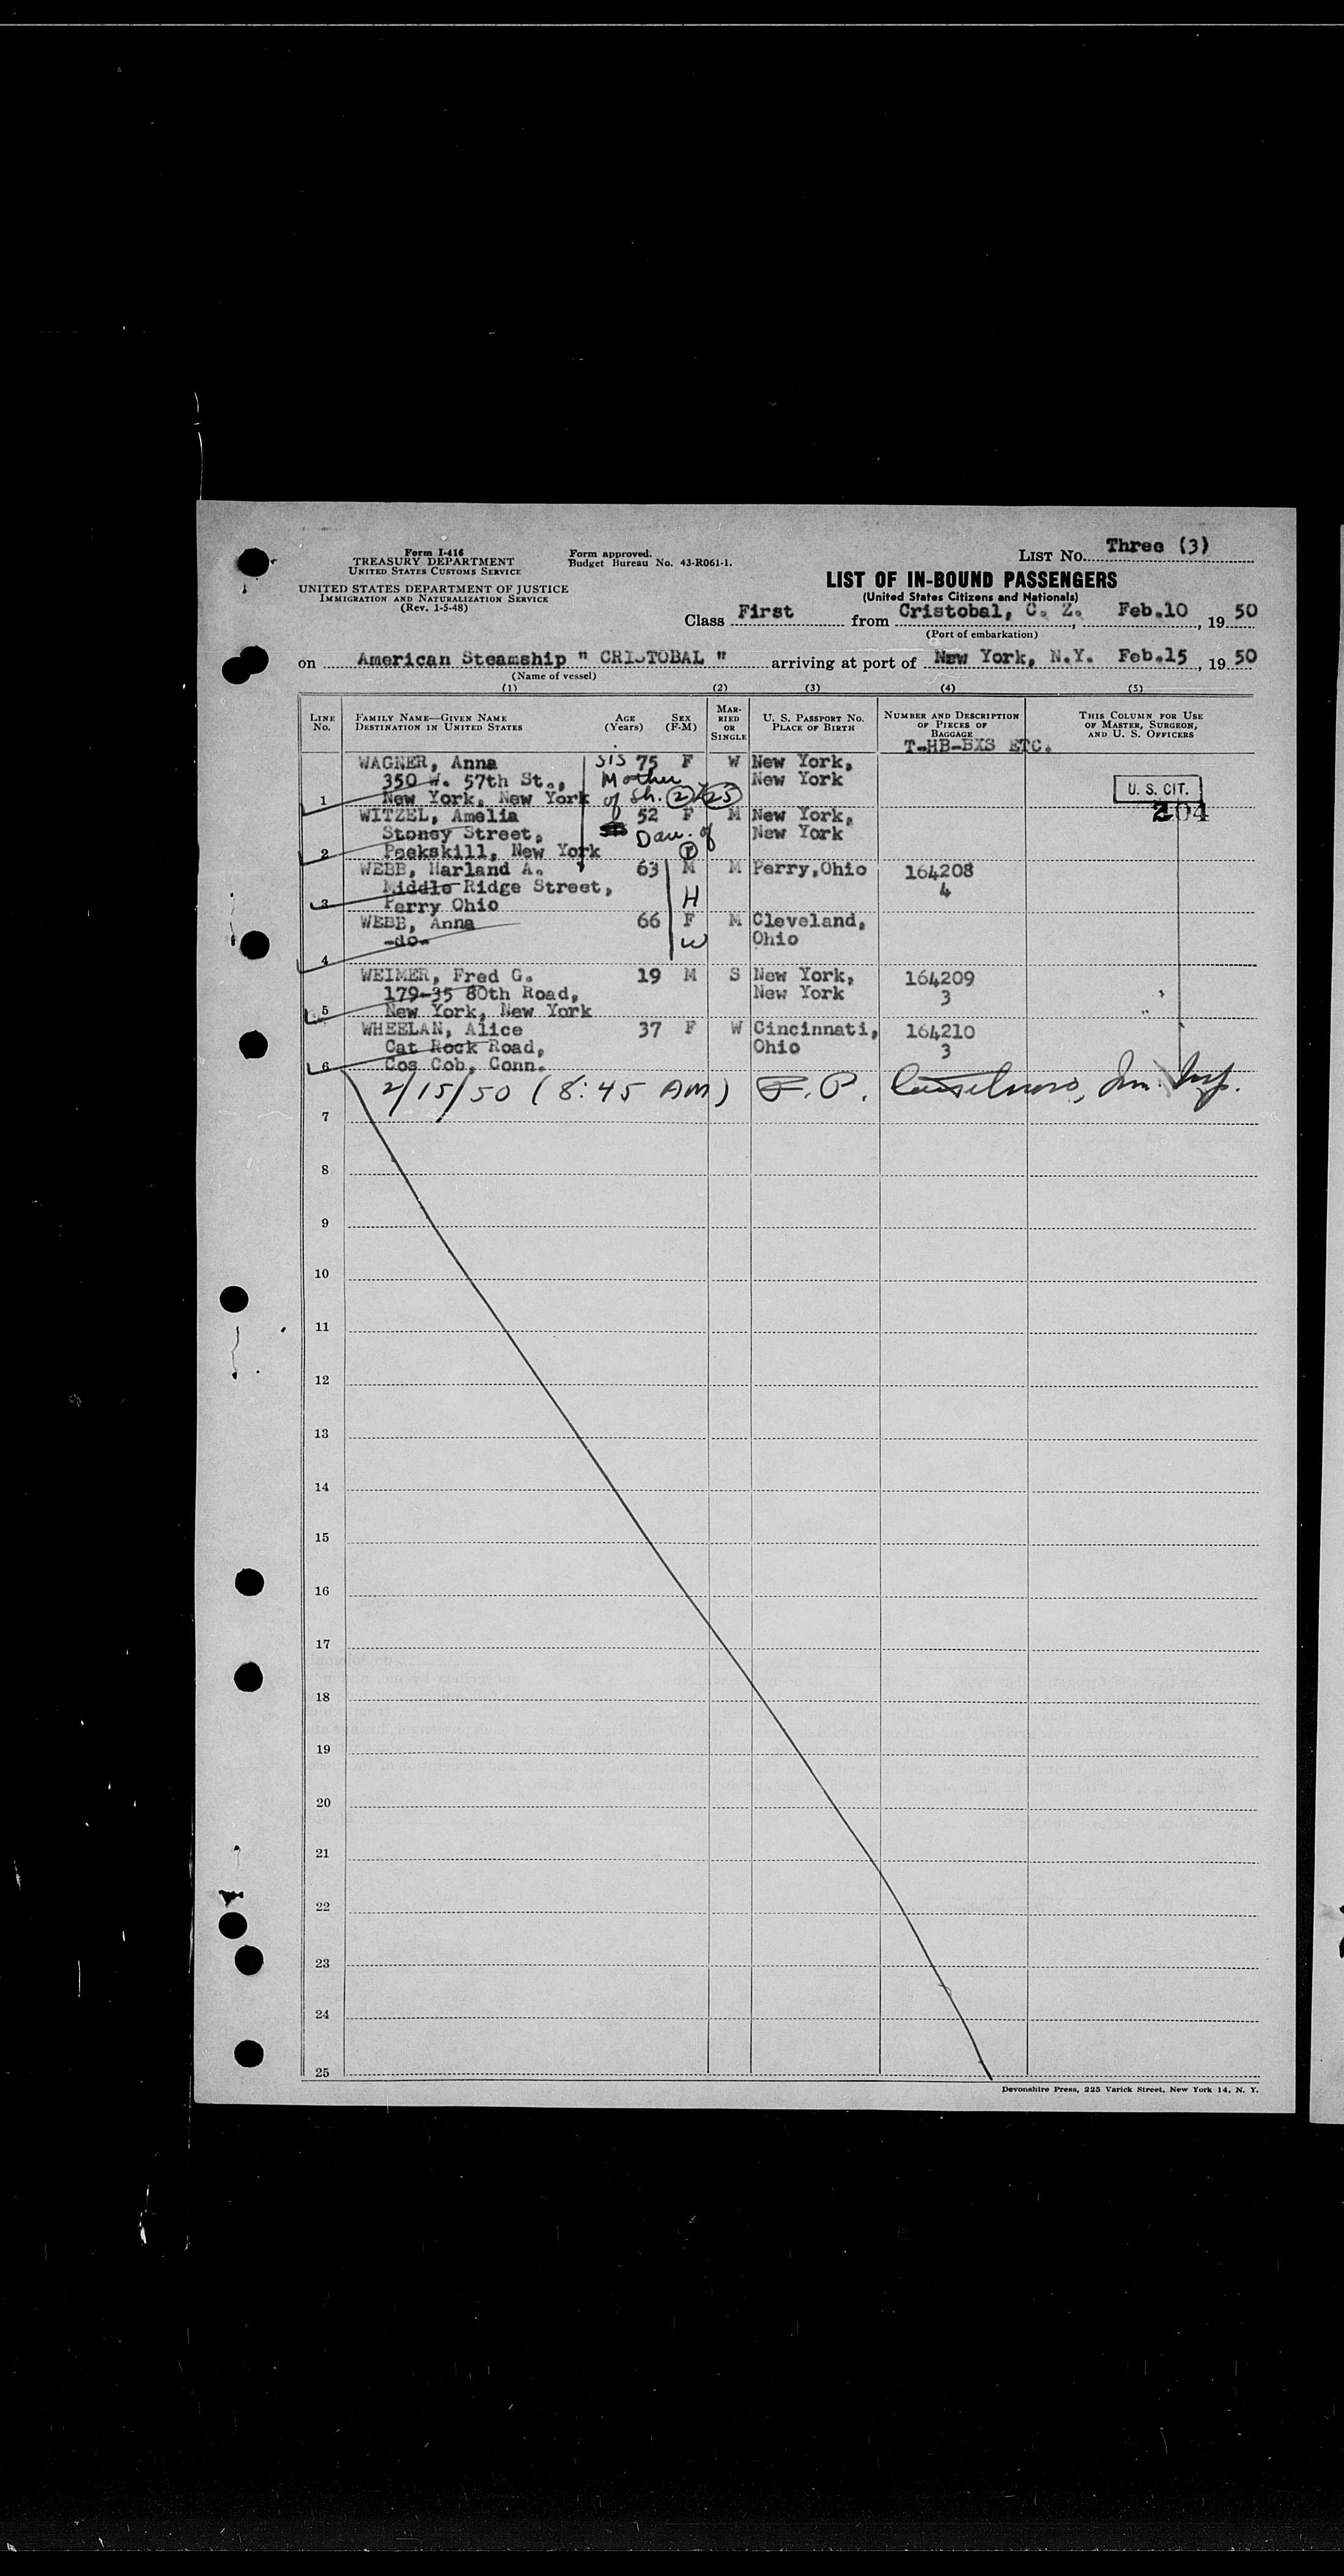 Form I-416
TREASURY DEPARTMENT
UNITED STATES CUSTOMS SERVICE
UNITED STATES DEPARTMENT OF JUSTICE
IMMIGRATION AND NATURALIZATION SERVICE
(Rev. 1-5-48)
Form approved.
Budget Bureau No. 43-R061-1.
LIST No. Three (3)
LIST OF IN-BOUND PASSENGERS
(United States Citizens and Nationals)
Class First from Cristobal, C. Z. Feb.10, 1950
(Port of embarkation)
on American Steamship " CRISTOBAL " arriving at port of New York, N.Y. Feb.15, 1950
(Name of vessel)
(1) (2) (3) (4) (5)
LINE No. FAMILY NAME—GIVEN NAME DESTINATION IN UNITED STATES AGE (Years) SEX (F-M) MARRIED OR SINGLE U. S. PASSPORT No. PLACE OF BIRTH NUMBER AND DESCRIPTION OF PIECES OF BAGGAGE THIS COLUMN FOR USE OF MASTER, SURGEON, AND U. S. OFFICERS
T-HB-BXS ETC.
WAGNER, Anna SIS 75 F W New York,
350 W. 57th St., Mother New York
1 New York, New York of Sh. 2 25 U. S. CIT.
WITZEL, Amelia 52 F M New York, 204
Stoney Street, Dau. of New York
2 Peekskill, New York 1
WEBB, Harland A. 63 M M Perry,Ohio 164208
Middle Ridge Street, H 4
3 Perry Ohio
WEBB, Anna 66 F M Cleveland,
-do- W Ohio
4
WEIMER, Fred G. 19 M S New York, 164209
179-35 80th Road, New York 3
5 New York, New York
WHEELAN, Alice 37 F W Cincinnati, 164210
Cat Rock Road, Ohio 3
6 Cos Cob, Conn.
2/15/50 (8:45 AM) F. P. Im. Insp.
7
8
9
10
11
12
13
14
15
16
17
18
19
20
21
22
23
24
25
Devonshire Press, 225 Varick Street, New York 14, N. Y.